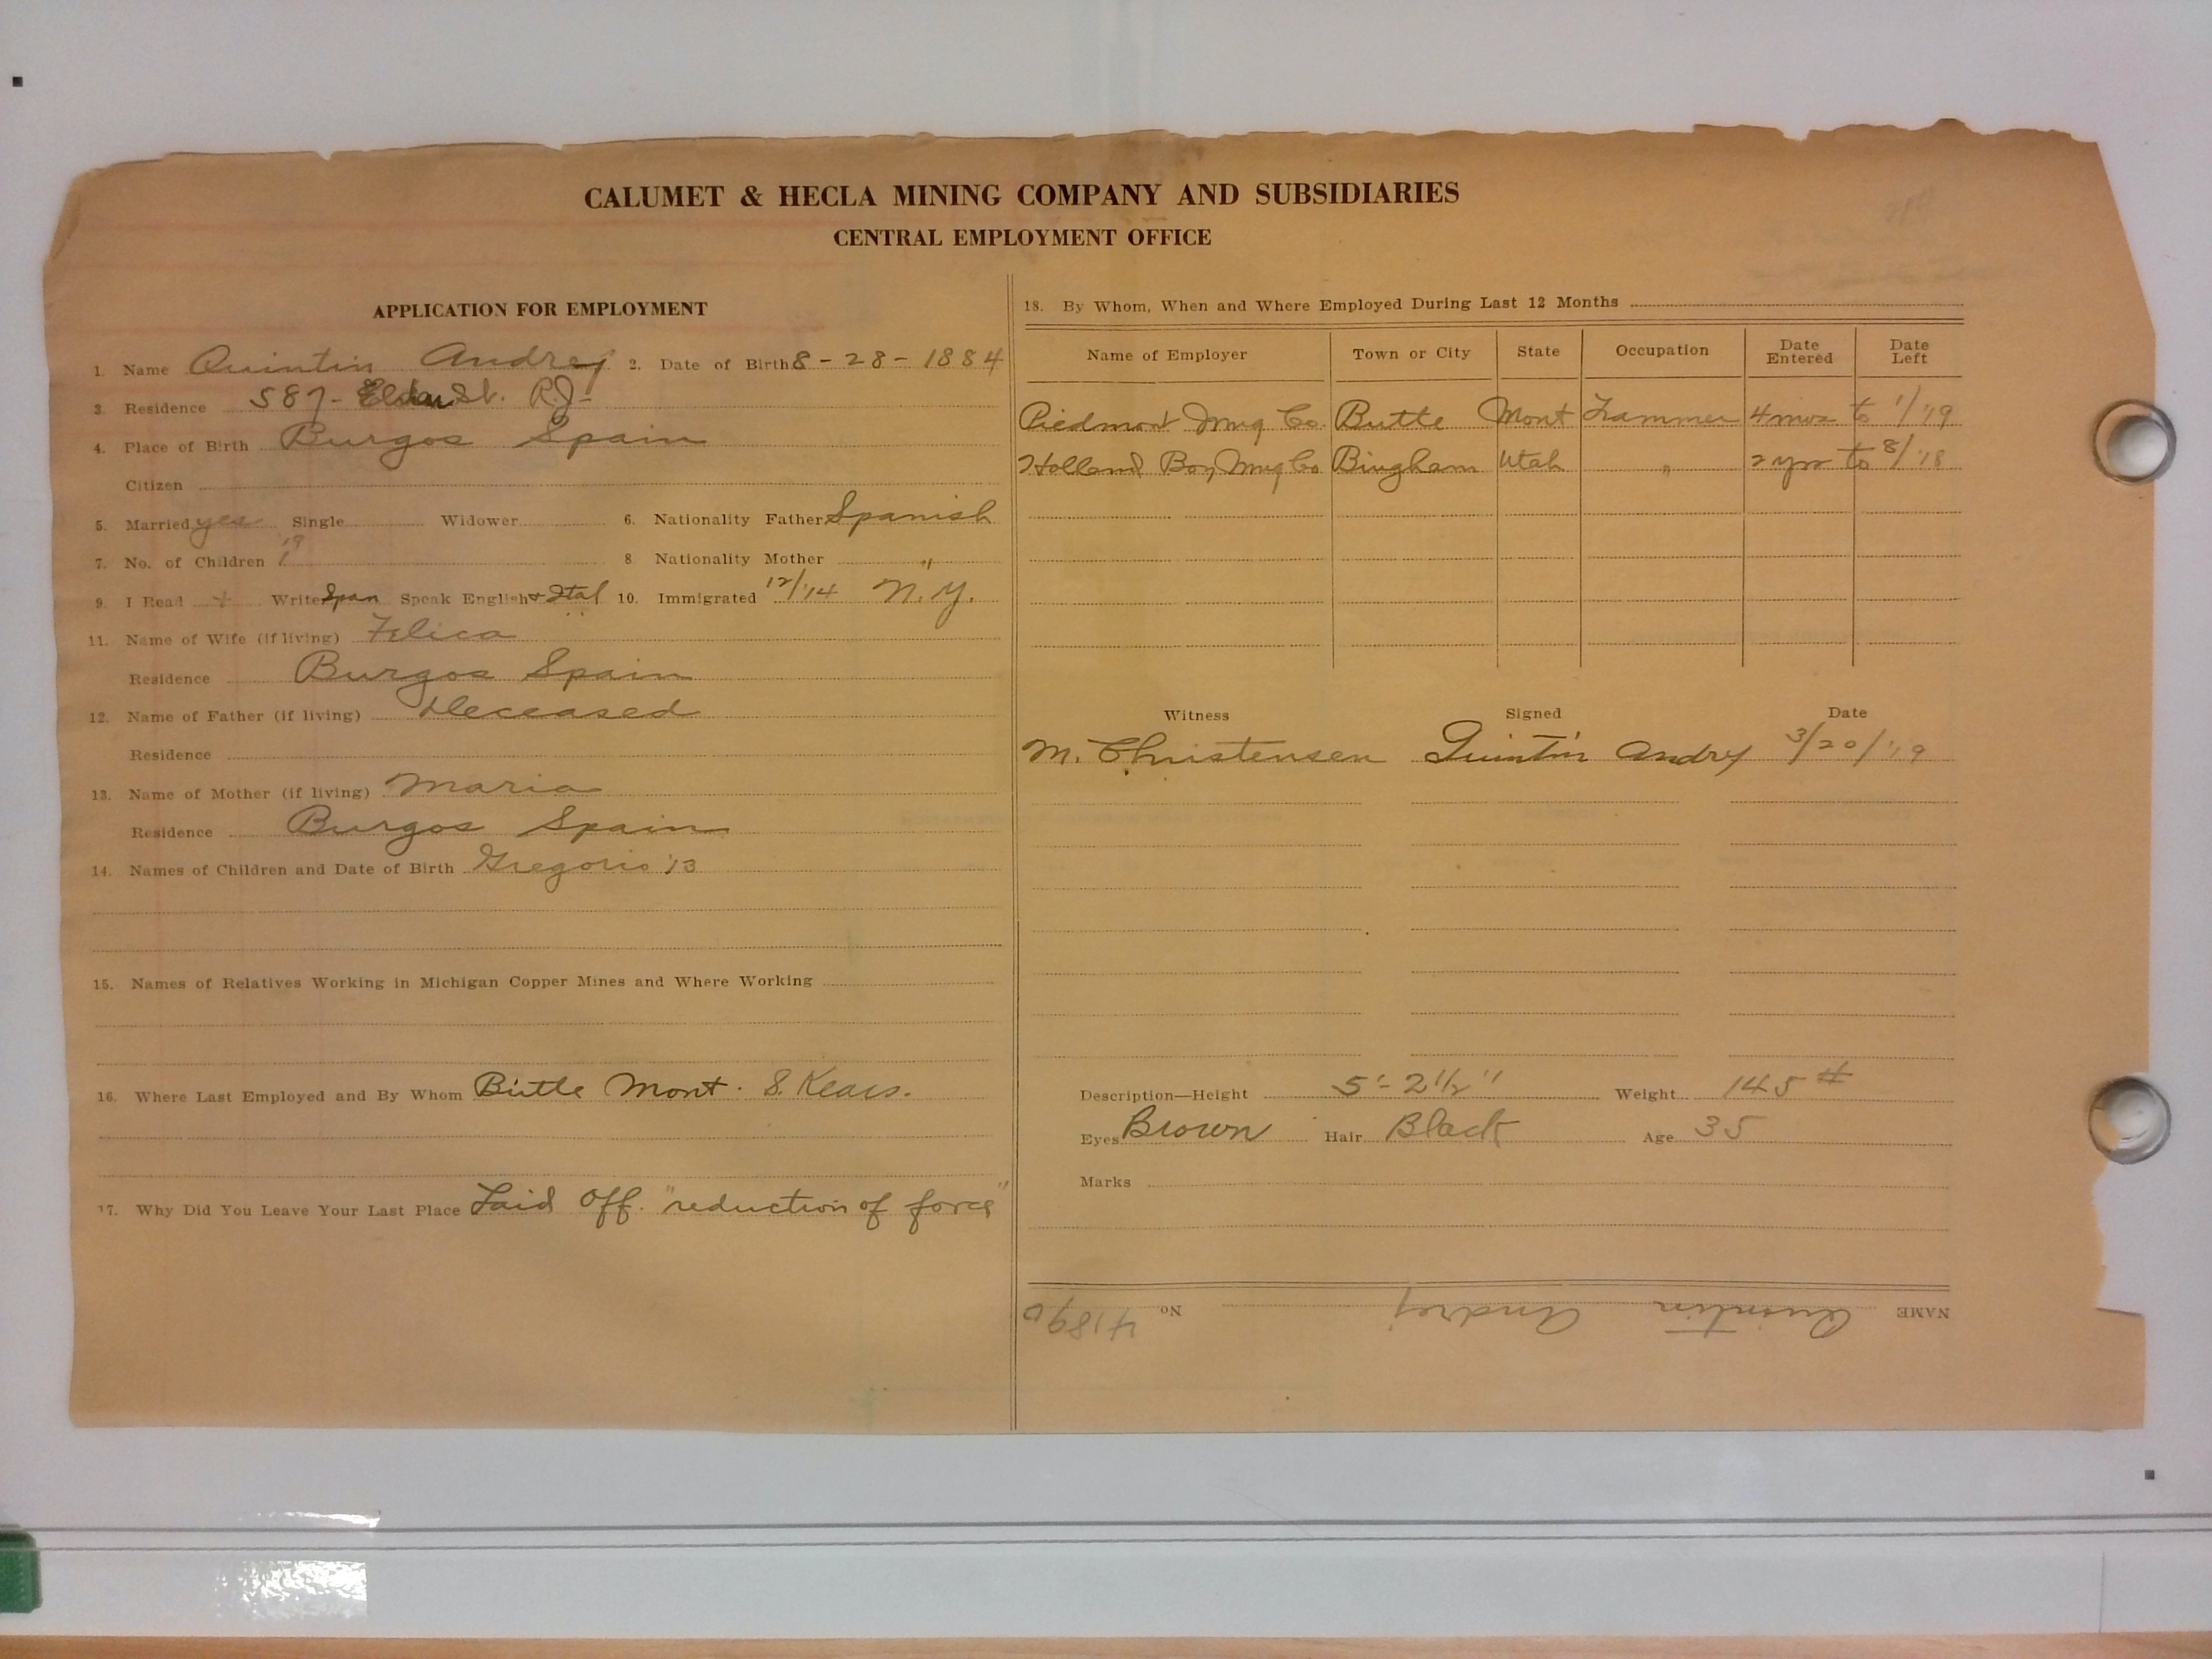 CALUMET & HECLA MINING COMPANY AND SUBSIDIARIES
CENTRAL EMPLOYMENT OFFICE
APPLICATION FOR EMPLOYMENT
1. Name Quintin Andrej 2. Date of Birth 8-28-1884
3. Residence 587- St. R.J-
4. Place of Birth Burgos Spain
Citizen
5. Married yes Single Widower 6. Nationality Father Spanish
7. No. of Children 1 8 Nationality Mother "
9. I Read + Write Span Speak English & Ital 10. Immigrated 12/'14 N.Y.
11. Name of Wife (if living) Felica
Residence Burgos Spain
12. Name of Father (if living) Deceased
Residence
13. Name of Mother (if living) Maria
Residence Burgos Spain
14. Names of Children and Date of Birth Gregorio '13
15. Names of Relatives Working in Michigan Copper Mines and Where Working
16. Where Last Employed and By Whom Butte Mont. S.
17. Why Did You Leave Your Last Place Laid Off. "reduction of force"
18. By Whom, When and Where Employed During Last 12 Months
Name of Employer Town or City State Occupation Date Entered Date Left
Piedmont Mng Co. Butte Mont Trammer 4 mos to 1/'19
Holland Boy Mng Co Bingham Utah " 2 yrs to 8/'18
Witness Signed Date
M. Christensen Quintin Andrj 3/20/'19
Description—Height 5'-2 1/2" Weight 145 #
Eyes Brown Hair Black Age 35
Marks
NAME Quintin Andrej No 41890